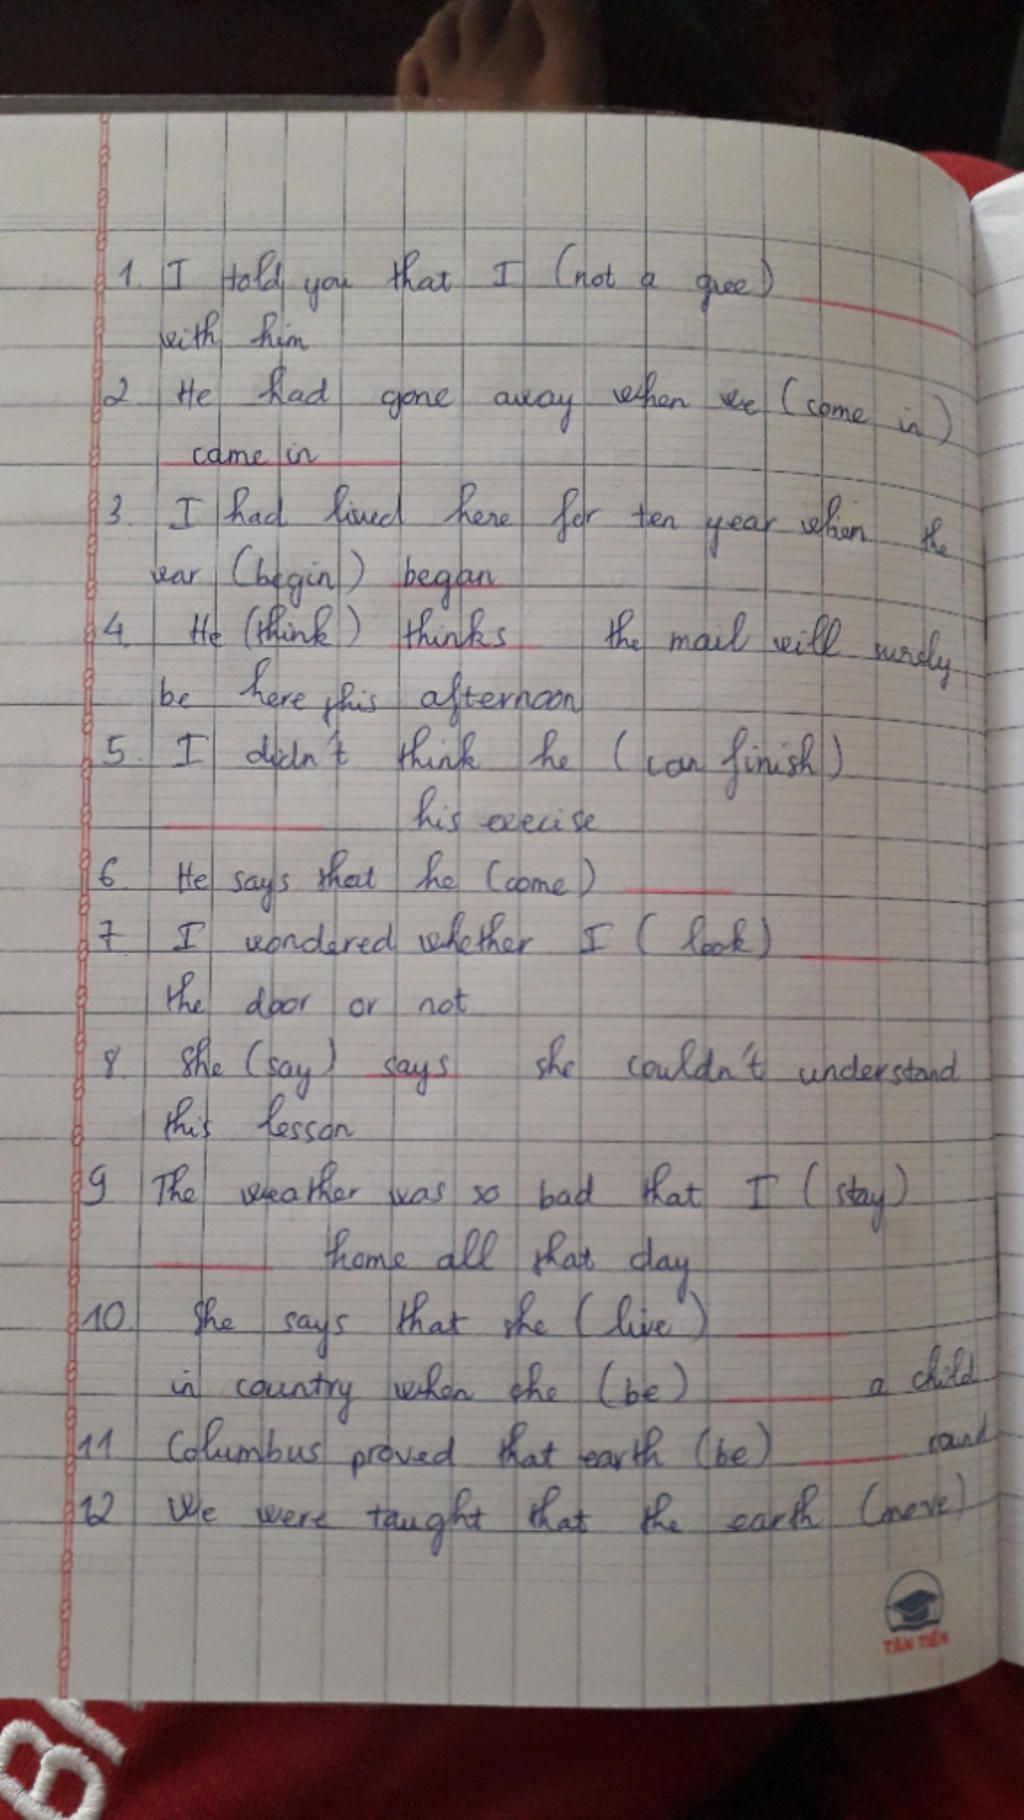 1. I told you that I (not a gree)
with him
2 He had gone away when we (come in)
came in
3. I had lived here for ten year when the
war (begin) began
4. He (think) thinks the mail will surely
be here this afternoon
5. I didn't think he (can finish)
his execise
6. He says that he (come)
7 I wondered whether I (look)
the door or not
8. She (say) says she couldn't understand
this lesson
9 The weather was so bad that I (stay)
home all that day
10. She says that she (live)
in country when she (be) a child
11 Columbus proved that earth (be) round
12 We were taught that the earth (move)
TÂN TIẾN